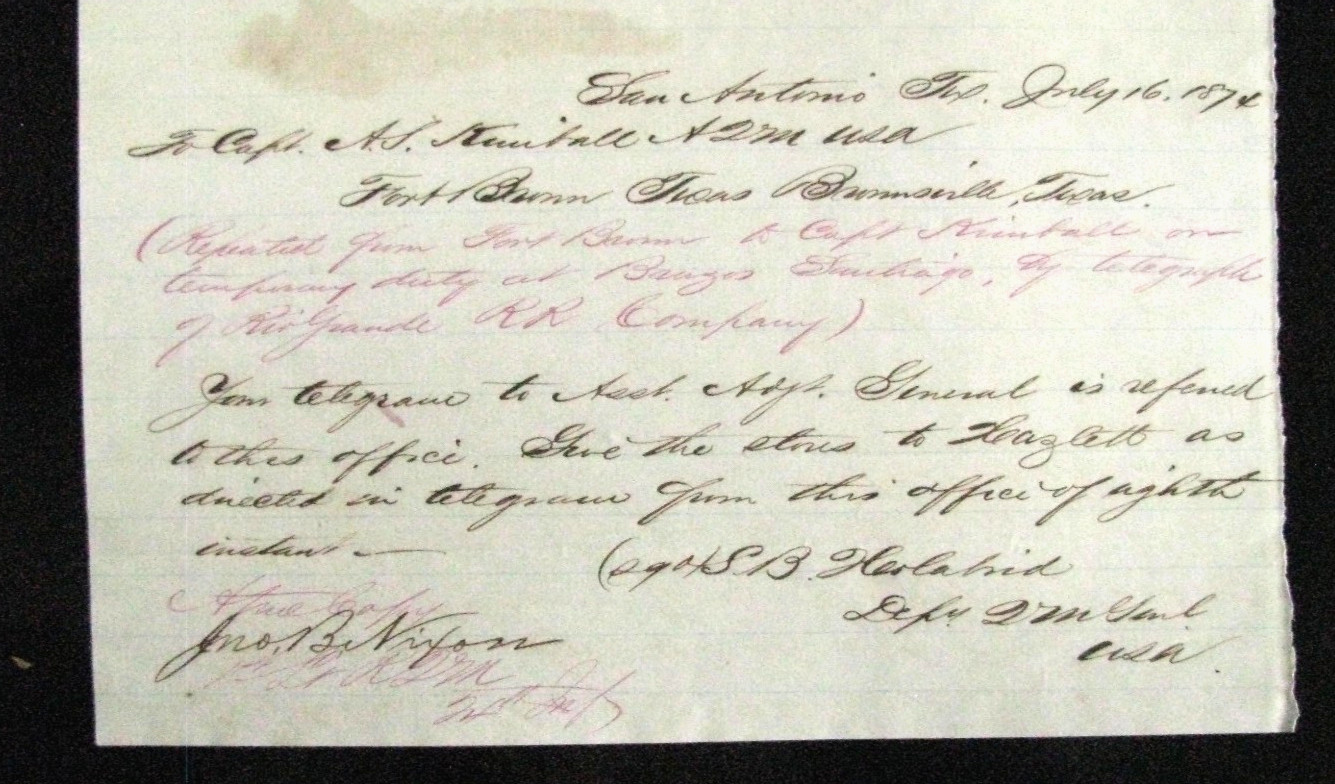 San Antonio Tex. July 16. 1874
To Capt. A.S. Kimball A Q M USA
Fort Brown Texas Brownsville, Texas.
(Repeated from Fort Brown to Capt Kimball on
temporary duty at Brazos Santiago, by telegraph
of Rio Grande RR Company)
Your telegram to Asst. Adjt. General is referred
to this office. Give the stores to Hazlett as
directed in telegram from this office of eighth
instant —
(sgd) S.B. Holabird
Depy Q M Genl.
USA.
A true Copy
Jno. B. Nixon
R Q M
24th Inf